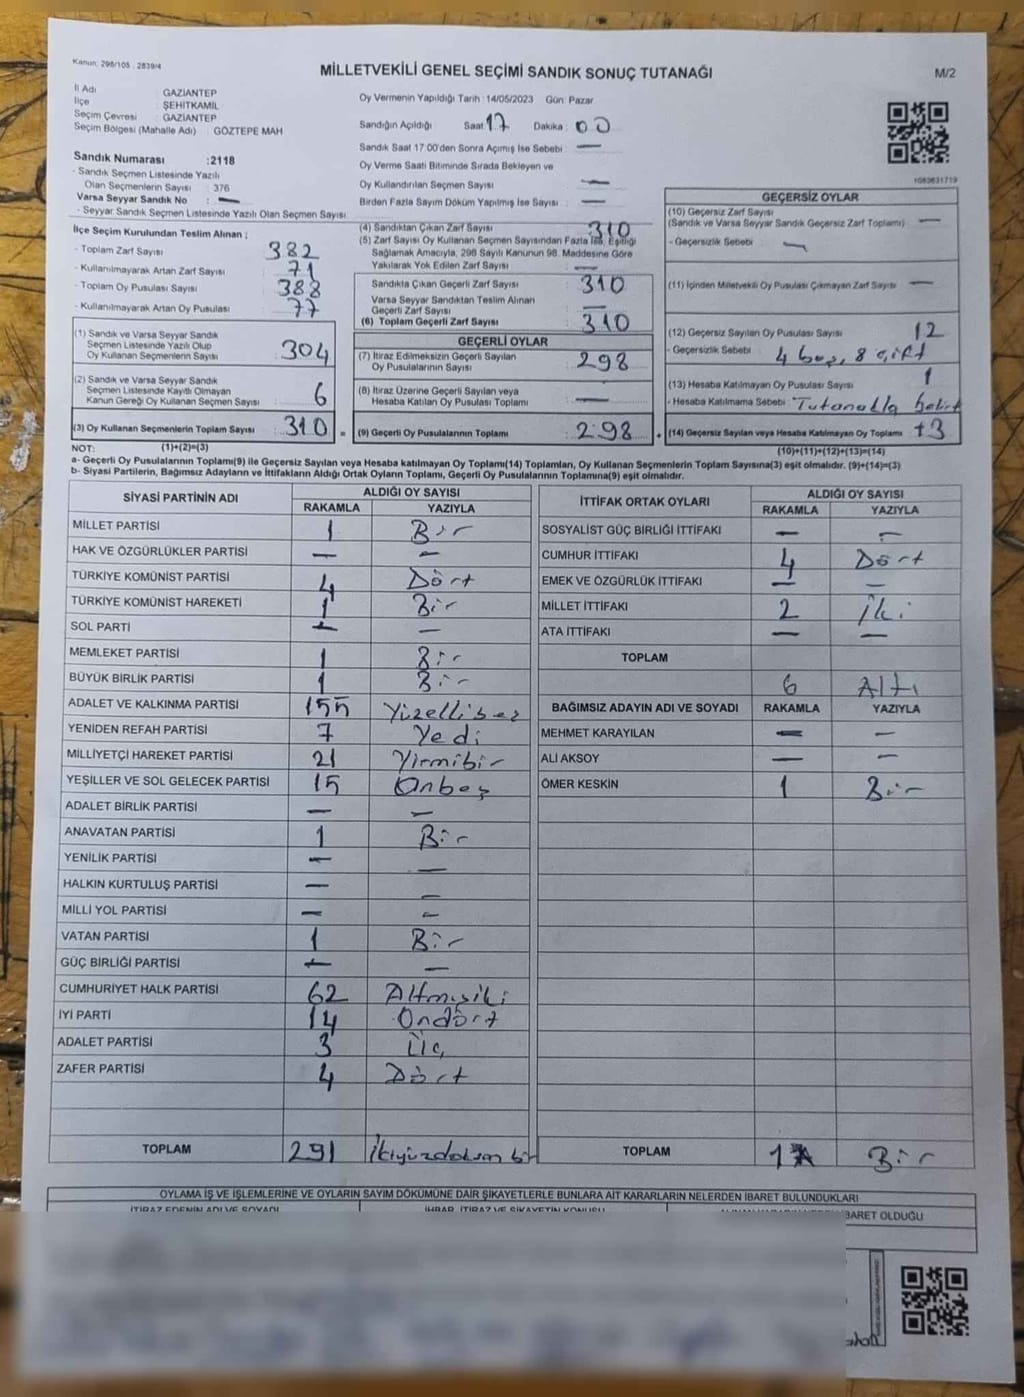 Kanun: 298/105 , 2839/4
MİLLETVEKİLİ GENEL SEÇİMİ SANDIK SONUÇ TUTANAĞI
M/2
İl Adı GAZİANTEP
İlçe ŞEHİTKAMİL
Seçim Çevresi GAZİANTEP
Seçim Bölgesi (Mahalle Adı) GÖZTEPE MAH
Sandık Numarası :2118
- Sandık Seçmen Listesinde Yazılı
Olan Seçmenlerin Sayısı : 376
Varsa Seyyar Sandık No : —
- Seyyar Sandık Seçmen Listesinde Yazılı Olan Seçmen Sayısı
Oy Vermenin Yapıldığı Tarih : 14/05/2023 Gün: Pazar
Sandığın Açıldığı Saat 17 Dakika : 00
Sandık Saat 17.00'den Sonra Açımış İse Sebebi : —
Oy Verme Saati Bitiminde Sırada Bekleyen ve
Oy Kullandırılan Seçmen Sayısı —
Birden Fazla Sayım Döküm Yapılmış İse Sayısı : —
1083631719
İlçe Seçim Kurulundan Teslim Alınan ;
- Toplam Zarf Sayısı 382
- Kullanılmayarak Artan Zarf Sayısı : 71
- Toplam Oy Pusulası Sayısı : 388
- Kullanılmayarak Artan Oy Pusulası : 77
(1) Sandık ve Varsa Seyyar Sandık
Seçmen Listesinde Yazılı Olup
Oy Kullanan Seçmenlerin Sayısı : 304
(2) Sandık ve Varsa Seyyar Sandık
Seçmen Listesinde Kayıtlı Olmayan
Kanun Gereği Oy Kullanan Seçmen Sayısı : 6
(3) Oy Kullanan Seçmenlerin Toplam Sayısı : 310 =
(4) Sandıktan Çıkan Zarf Sayısı : 310
(5) Zarf Sayısı Oy Kullanan Seçmen Sayısından Fazla İse, Eşitliği
Sağlamak Amacıyla, 298 Sayılı Kanunun 98. Maddesine Göre
Yakılarak Yok Edilen Zarf Sayısı : —
Sandıkla Çıkan Geçerli Zarf Sayısı : 310
Varsa Seyyar Sandıktan Teslim Alınan
Geçerli Zarf Sayısı : —
(6) Toplam Geçerli Zarf Sayısı : 310
GEÇERLİ OYLAR
(7) İtiraz Edilmeksizin Geçerli Sayılan
Oy Pusulalarının Sayısı : 298
(8) İtiraz Üzerine Geçerli Sayılan veya
Hesaba Katılan Oy Pusulası Toplamı : —
(9) Geçerli Oy Pusulalarının Toplamı : 298 +
GEÇERSİZ OYLAR
(10) Geçersiz Zarf Sayısı
(Sandık ve Varsa Seyyar Sandık Geçersiz Zarf Toplamı) : —
- Geçersizlik Sebebi : —
(11) İçinden Milletvekili Oy Pusulası Çıkmayan Zarf Sayısı : —
(12) Geçersiz Sayılan Oy Pusulası Sayısı : 12
- Geçersizlik Sebebi : 4 boş, 8 çift
(13) Hesaba Katılmayan Oy Pusulası Sayısı : 1
- Hesaba Katılmama Sebebi : Tutanakla belirt
(14) Geçersiz Sayılan veya Hesaba Katılmayan Oy Toplamı : 13
NOT: (1)+(2)=(3) (10)+(11)+(12)+(13)=(14)
a- Geçerli Oy Pusulalarının Toplamı(9) ile Geçersiz Sayılan veya Hesaba katılmayan Oy Toplamı(14) Toplamları, Oy Kullanan Seçmenlerin Toplam Sayısına(3) eşit olmalıdır. (9)+(14)=(3)
b- Siyasi Partilerin, Bağımsız Adayların ve İttifakların Aldığı Ortak Oyların Toplamı, Geçerli Oy Pusulalarının Toplamına(9) eşit olmalıdır.
SİYASİ PARTİNİN ADI ALDIĞI OY SAYISI
RAKAMLA YAZIYLA
MİLLET PARTİSİ 1 Bir
HAK VE ÖZGÜRLÜKLER PARTİSİ — —
TÜRKİYE KOMÜNİST PARTİSİ 4 Dört
TÜRKİYE KOMÜNİST HAREKETİ 1 Bir
SOL PARTİ — —
MEMLEKET PARTİSİ 1 Bir
BÜYÜK BİRLİK PARTİSİ 1 Bir
ADALET VE KALKINMA PARTİSİ 155 Yüzellibeş
YENİDEN REFAH PARTİSİ 7 Yedi
MİLLİYETÇİ HAREKET PARTİSİ 21 Yirmibir
YEŞİLLER VE SOL GELECEK PARTİSİ 15 Onbeş
ADALET BİRLİK PARTİSİ — —
ANAVATAN PARTİSİ 1 Bir
YENİLİK PARTİSİ — —
HALKIN KURTULUŞ PARTİSİ — —
MİLLİ YOL PARTİSİ — —
VATAN PARTİSİ 1 Bir
GÜÇ BİRLİĞİ PARTİSİ — —
CUMHURİYET HALK PARTİSİ 62 Altmışiki
İYİ PARTİ 14 Ondört
ADALET PARTİSİ 3 Üç
ZAFER PARTİSİ 4 Dört
TOPLAM 291 İkiyüzdoksan bir
İTTİFAK ORTAK OYLARI ALDIĞI OY SAYISI
RAKAMLA YAZIYLA
SOSYALİST GÜÇ BİRLİĞİ İTTİFAKI — —
CUMHUR İTTİFAKI 4 Dört
EMEK VE ÖZGÜRLÜK İTTİFAKI — —
MİLLET İTTİFAKI 2 İki
ATA İTTİFAKI — —
TOPLAM
6 Altı
BAĞIMSIZ ADAYIN ADI VE SOYADI RAKAMLA YAZIYLA
MEHMET KARAYILAN — —
ALİ AKSOY — —
ÖMER KESKİN 1 Bir
TOPLAM 1 Bir
OYLAMA İŞ VE İŞLEMLERİNE VE OYLARIN SAYIM DÖKÜMÜNE DAİR ŞİKAYETLERLE BUNLARA AİT KARARLARIN NELERDEN İBARET BULUNDUKLARI
İTİRAZ EDENİN ADI VE SOYADI İHBAR, İTİRAZ VE ŞİKAYETİN KONUSU BARET OLDUĞU